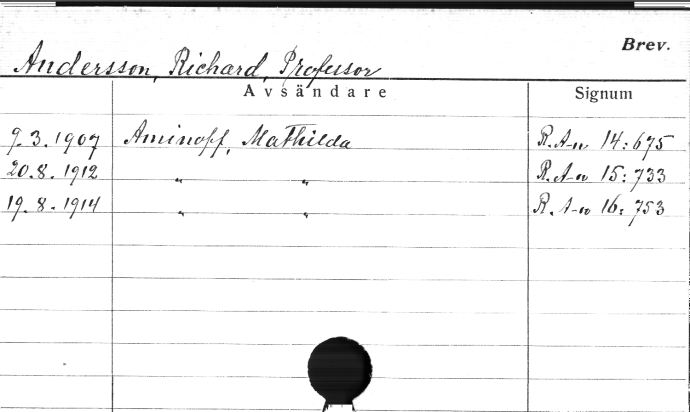 Brev.
Andersson, Richard, Professor
Avsändare Signum
9.3.1907 Aminoff, Mathilda R.A-n 14:675
20.8.1912 " " R.A-n 15:733
19.8.1914 " " R.A-n 16:753